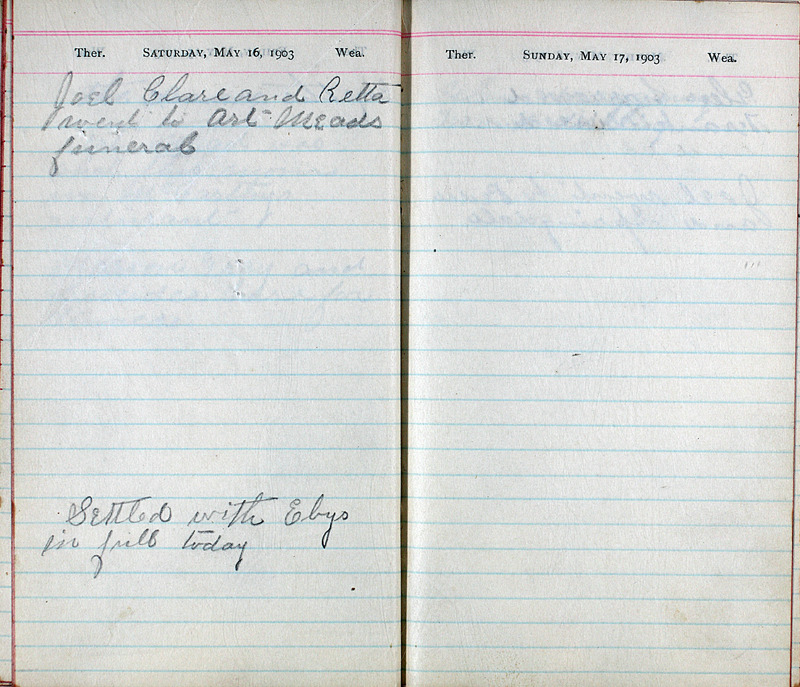 Ther. SATURDAY, MAY 16, 1903 Wea.
Joel Clare and Retta
went to Art Meads
funeral
Settled with Ebys
in full today
Ther. SUNDAY, MAY 17, 1903 Wea.